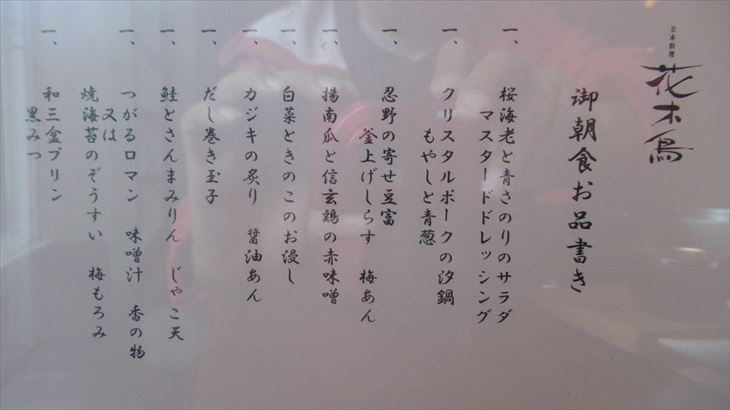 日本料理
花木鳥
御朝食お品書き
一、桜海老と青さのりのサラダ
マスタードドレッシング
一、クリスタルポークの汐鍋
もやしと青葱
一、忍野の寄せ豆富
釜上げしらす 梅あん
一、揚南瓜と信玄鶏の赤味噌
一、白菜ときのこのお浸し
一、カジキの炙り 醤油あん
一、だし巻き玉子
一、鮭とさんまみりん じゃこ天
一、つがるロマン 味噌汁 香の物
又は
焼海苔のぞうすい 梅もろみ
一、和三盆プリン
黒みつ